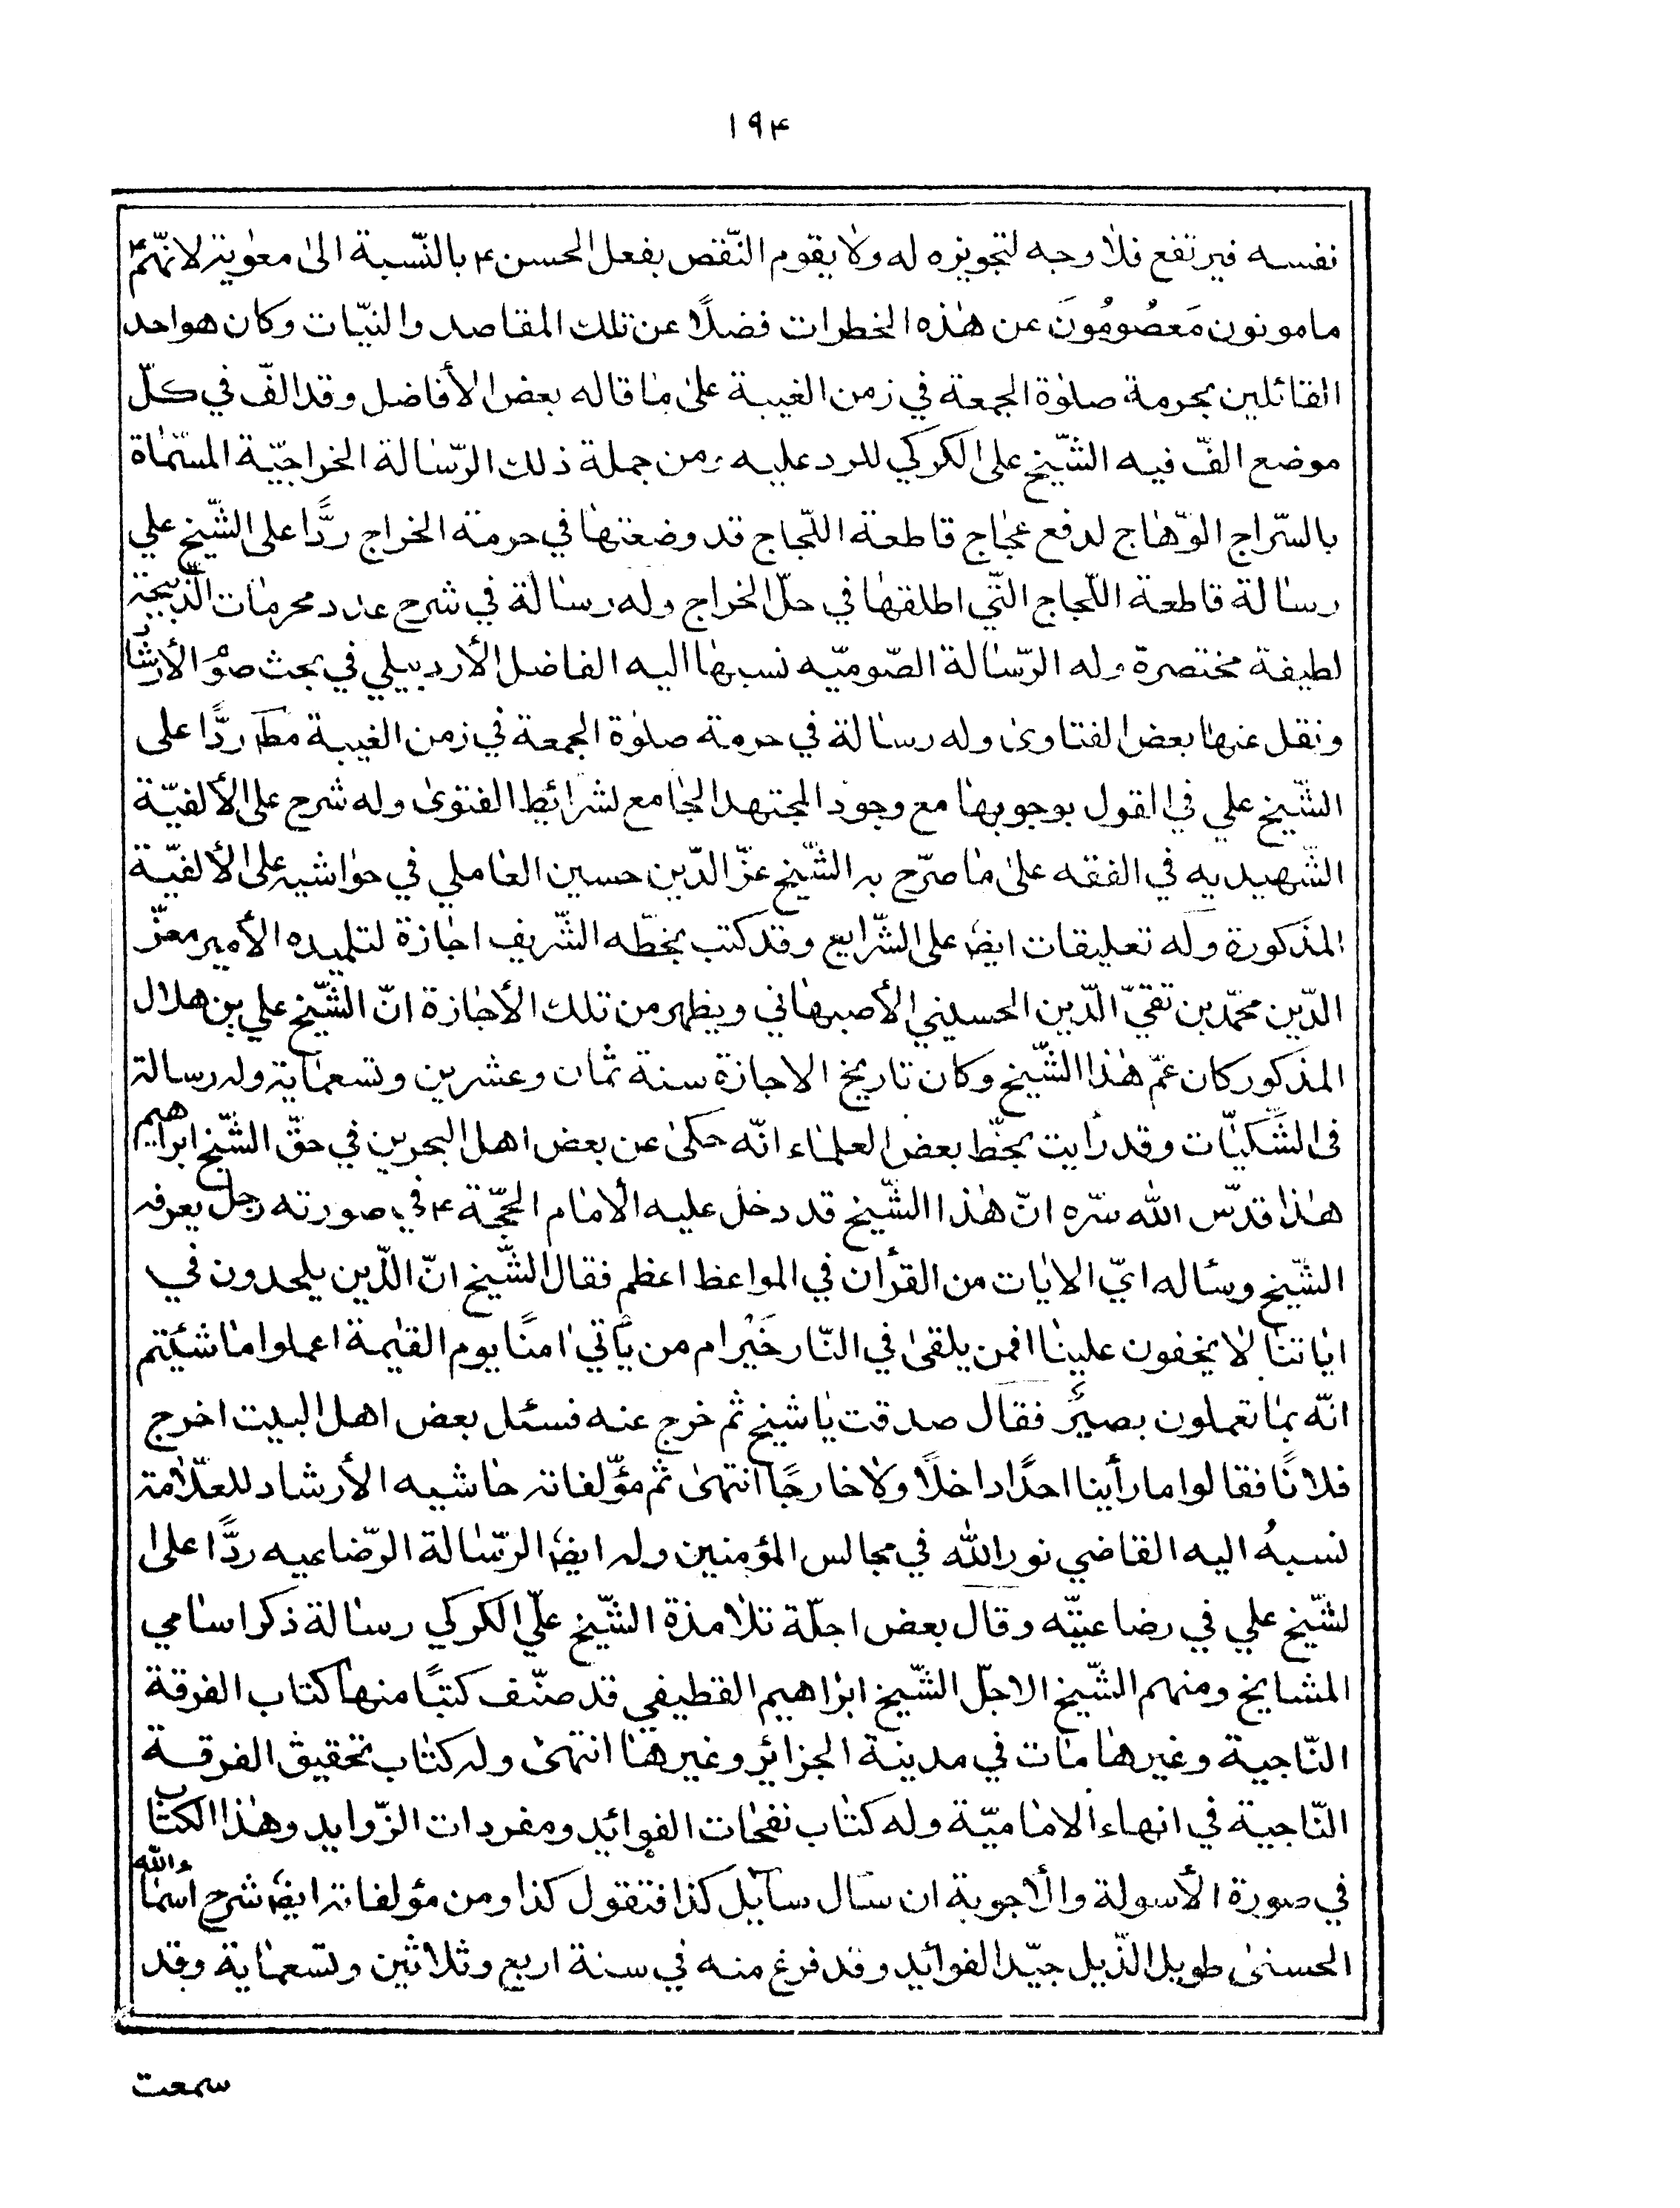 ١٩۴
نفسه فيرتفع فلا وجه لتجويزه له ولا يقوم النّقص بفعل الحسن ع بالنّسبة الى معوية لانّهم ع
مامونون مَعصُومُونَ عن هذه الخطرات فضلًا عن تلك المقاصد والنيّات وكان هو احد
القائلين بحرمة صلوة الجمعة في زمن الغيبة على ما قاله بعض الأفاضل وقد الفّ في كلّ
موضع الفّ فيه الشّيخ على الكركي للرد عليه ومن جملة ذلك الرّسالة الخراجيّة المسّماة
بالسّراج الوّهاج لدفع عجاج قاطعة اللّجاج قد وضعتها في حرمة الخراج ردًّا على الشّيخ علي
رسالة قاطعة اللّجاج التّي اطلقها في حلّ الخراج وله رسالة في شرح عدد محرمات الذّبيحة
لطيفة مختصرة وله الرّسالة الصّوميّه نسبها اليه الفاضل الأردبيلي في بحث صوم الأرشا
ونقل عنها بعض الفتاوى وله رسالة في حرمة صلوة الجمعة في زمن الغيبة مطَ ردًّا على
الشّيخ علي في القول بوجوبها مع وجود المجتهد الجامع لشرائط الفتوى وله شرح على الألفيّة
الشّهيديه في الفقه على ما صرّح به الشّيخ عزّ الدّين حسين العاملي في حواشيه على الألفيّة
المذكورة وله تعليقات ايضا على الشّرايع وقد كتب بخطّه الشّريف اجازة لتلميذه الأمير معزّ
الدّين محمّد بن تقيّ الدّين الحسيني الأصبهاني ويظهر من تلك الأجازة انّ الشّيخ علي بن هلال
المذكور كان عمّ هذا الشّيخ وكان تاريخ الاجازة سنة ثمان وعشرين وتسعماية وله رسالة
فى الشّكيّات وقد رأيت بخطّ بعض العلماء انّه حكى عن بعض اهل البحرين في حقّ الشّيخ ابراهيم
هذا قدّس الله سّره انّ هذا الشّيخ قد دخل عليه الأمام الحجّة ع في صورته رجل يعرفه
الشّيخ وسئاله ايّ الايات من القرأن في المواعظ اعظم فقال الشّيخ انّ الذّين يلحدون في
اياتنا لا يخفون علينا افمن يلقى في النّار خَيْر ام من يأتي امنًا يوم القيمة اعملوا ما شئتم
انّه بما تعملون بصيرٌ فقال صدقت يا شيخ ثم خرج عنه فسئل بعض اهل البيت اخرج
فلانًا فقالوا ما رأينا احدًا داخلًا ولا خارجًا انتهى ثمّ مؤّلفاته حاشيه الأرشاد للعلّامة
نسبهُ اليه القاضي نور الله في مجالس المؤمنين وله ايضا الرّسالة الرّضاعيه ردًّا على
لشّيخ علي في رضاعيّته وقال بعض اجلّة تلامذة الشّيخ علّي الكركي رسالة ذكر اسامي
المشايخ ومنهم الشّيخ الاجلّ الشّيخ ابراهيم القطيفي قد صنّف كتبًا منها كتاب الفرقة
النّاجية وغيرها مات في مدينة الجزائر وغيرها انتهى وله كتاب تحقيق الفرقة
النّاجية في انهاء الاماميّة وله كتاب نفحات الفوائد ومفردات الزّوايد وهذا الكتاب
في صورة الأسولة والأجوبة ان سال سآيل كذا فتقول كذا ومن مؤلفاته ايضا شرح اسماء الله
الحسنى طويل الذّيل جيّد الفوائد وقد فرغ منه في سنة اربع وثلاثين وتسعماية وقد
سمعت